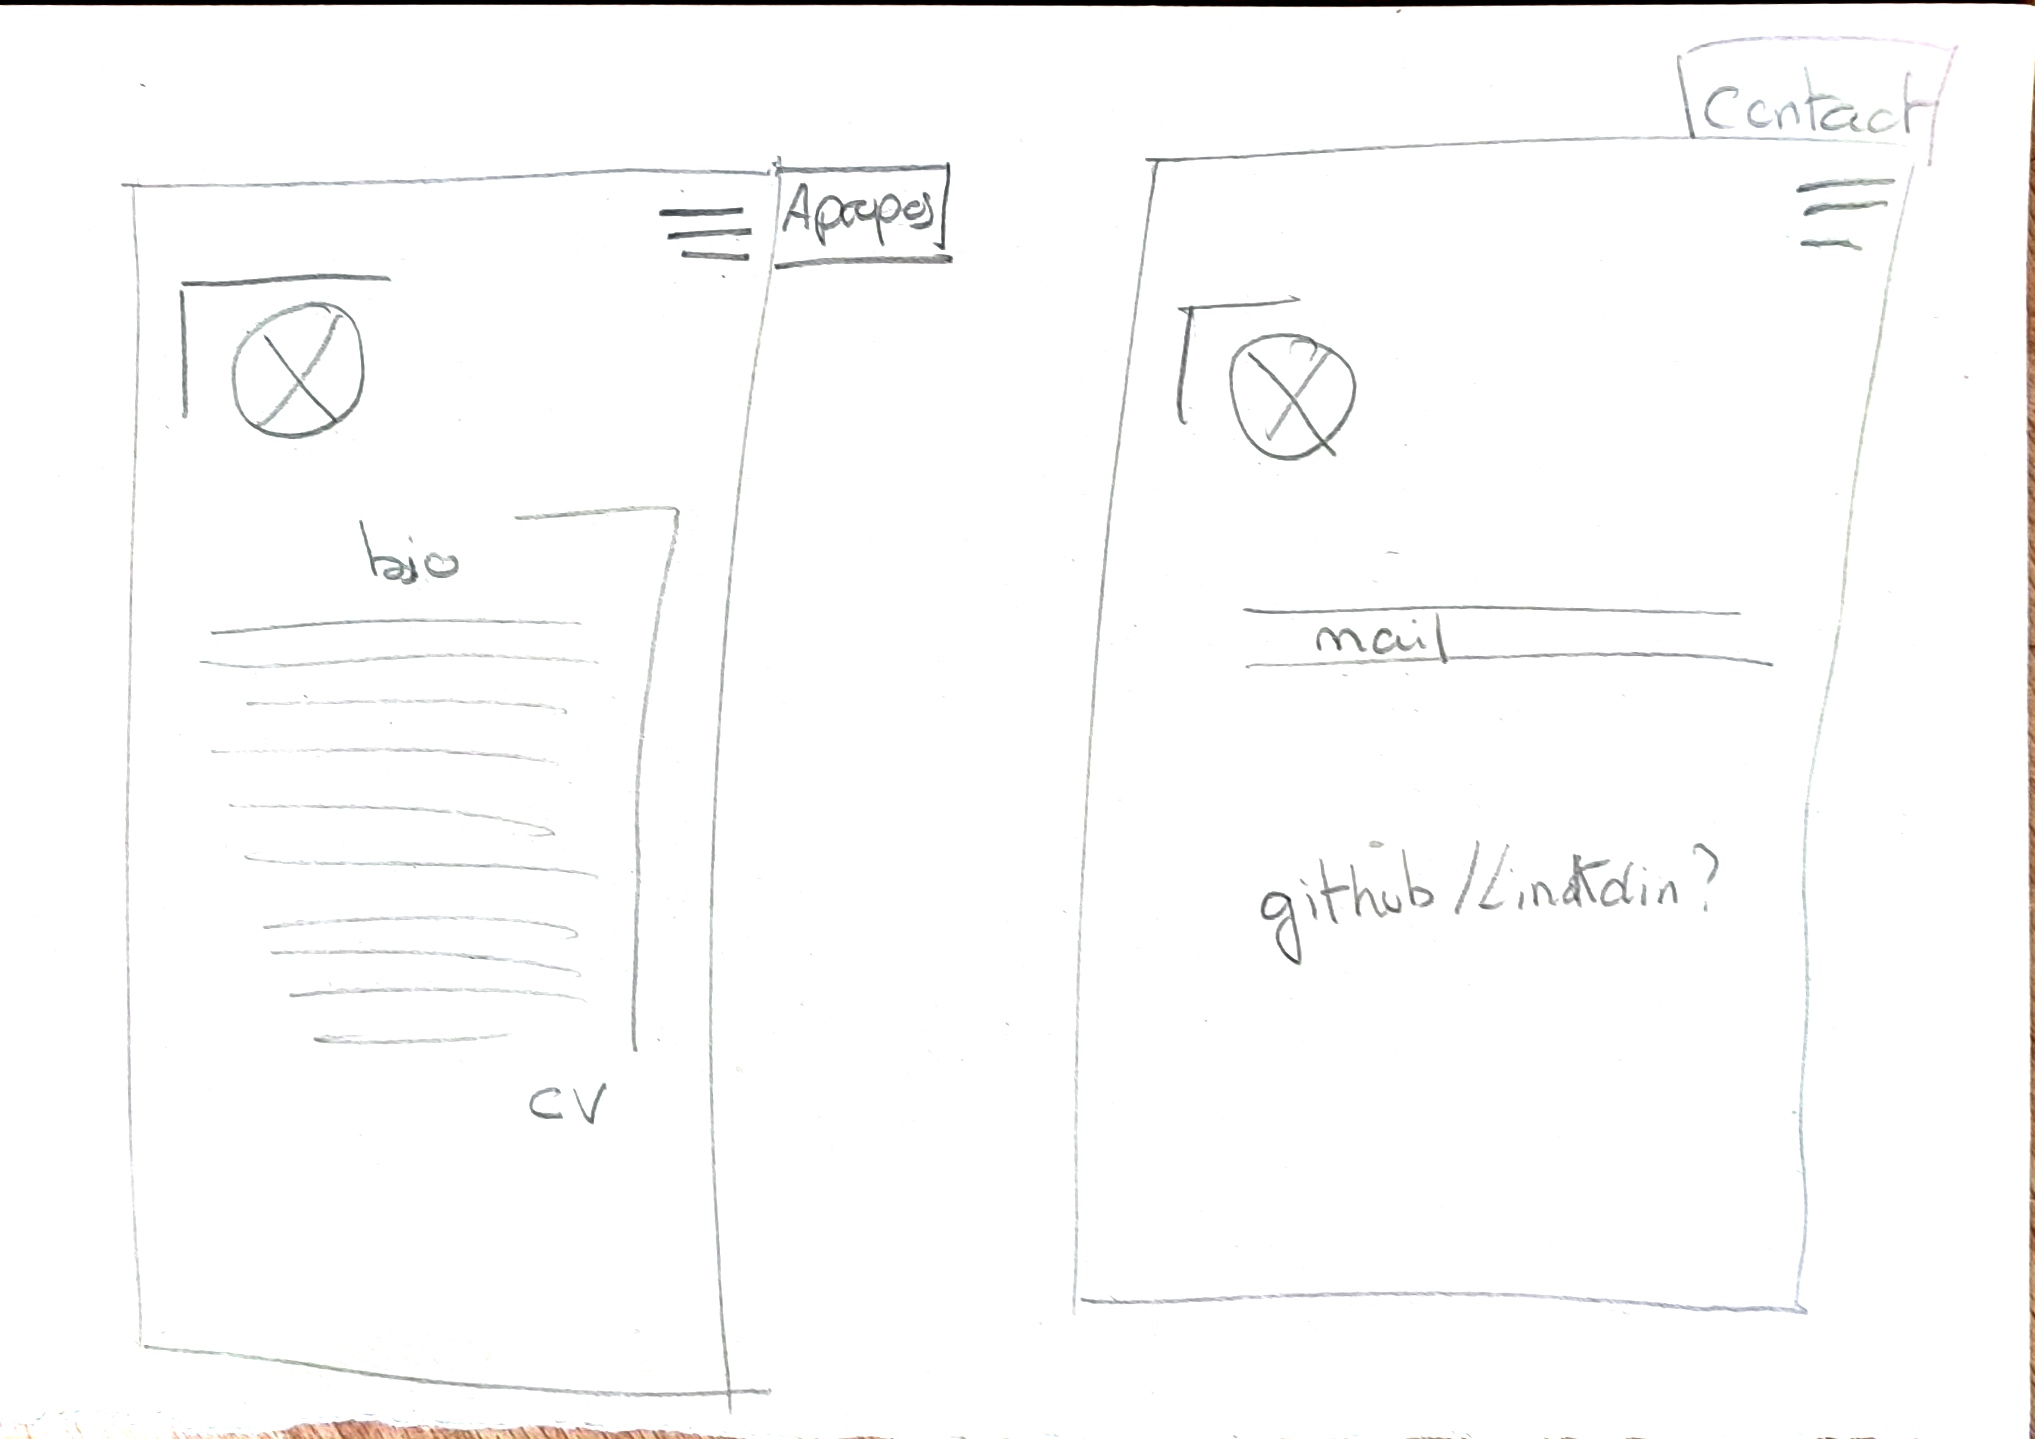 Apropos
bio
CV
Contact
mail
github/Linktdin?